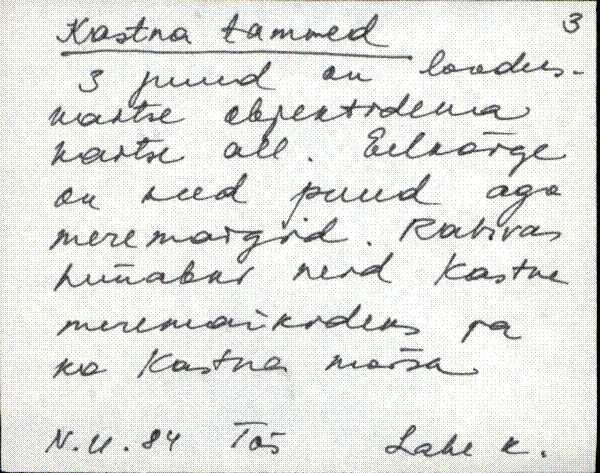 Kastna tammed 3
3 puud on loodus-
kaitse objektidena
kaitse all. Eelkõige
on need puud aga
meremärgid. Rahvas
hüüabki neid Kastna
meremärkideks ja
ka Kastna mõisa
N. U. 84 Tõs Lahe k.